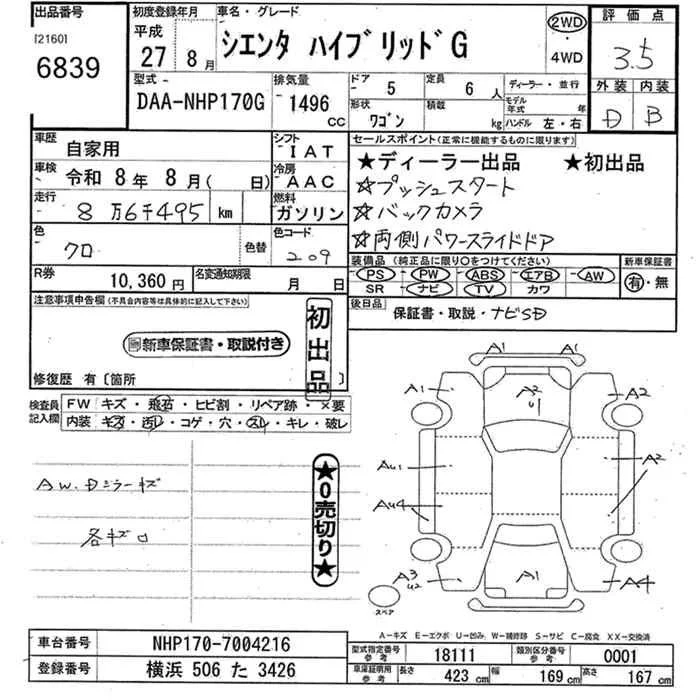 出品番号 初度登録年月 車名・グレード 2WD 評価点
[2160] 平成 シエンタ ハイブリッドG ・ 3.5
6839 27年 8月 4WD 外装 内装
型式 排気量 ドア 定員 ディーラー・並行 D B
DAA-NHP170G 1496 CC 5 6人 モデル年式 年
形状 ワゴン 積載 kg ハンドル 左・右
車歴 自家用 シフト IAT セールスポイント(正常に機能するものに限ります)
車検 令和 8年 8月( 日) 冷房 AAC ★ディーラー出品 ★初出品
走行 8万6千495 km 燃料 ガソリン ☆プッシュスタート
色 クロ 色替 色コード 209 ☆バックカメラ
☆両側パワースライドドア
R券 10,360円 名変通知期限 月 日 装備品(純正品に限り○をつけてください) 新車保証書
PS PW ABS エアB AW 有・無
SR ナビ TV カワ
注意事項申告欄(不具合内容等は具体的に記入して下さい) 後日品 保証書・取説・ナビSD
初出品
新車保証書・取説付き
修復歴 有〔箇所 〕
検査員記入欄 FW キズ・飛石・ヒビ割・リペア跡・×要
内装 キズ・汚レ・コゲ・穴・スレ・キレ・破レ
AW.Dミラーキズ
各キズ
★0売切り★
A1 A1
A1 A2 U1 A2
AU1 A2
AU4
A3 U2 A1 A4
スペア
A−キズ E−エクボ U−凹み W−補修跡 S−サビ C−腐食 XX−交換済
車台番号 NHP170-7004216 型式指定番号 参考 18111 類別区分番号 参考 0001
登録番号 横浜 506 た 3426 車庫証明用 参考 長さ 423 cm 幅 169 cm 高さ 167 cm